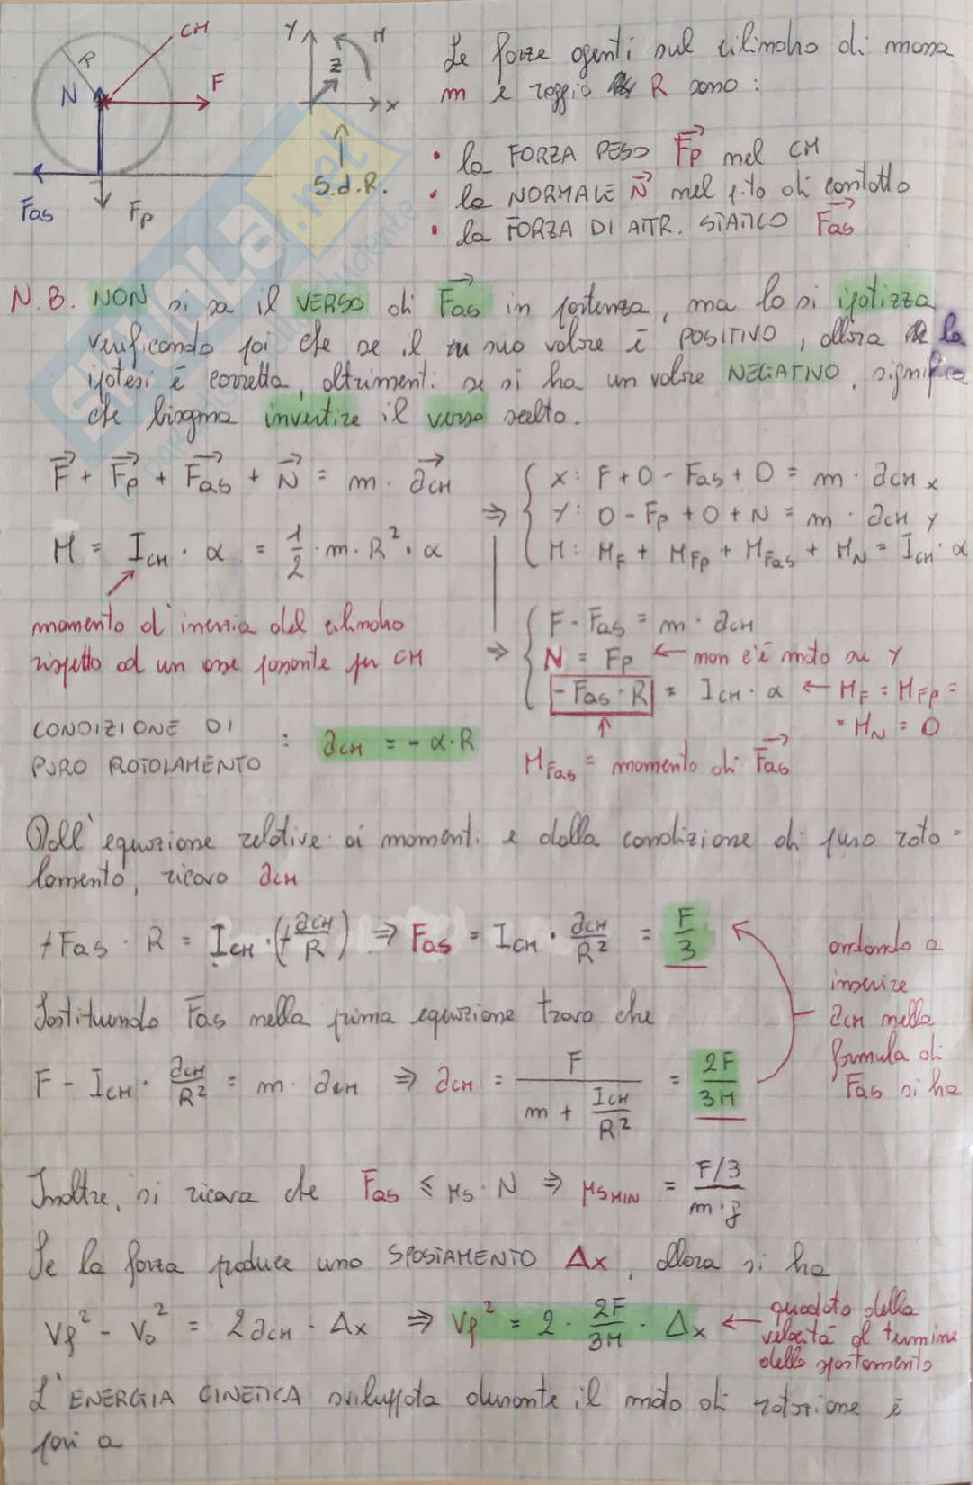 CM
R
F
N
Fas
Fp
Y
M
Z
x
S.d.R.
Le forze agenti sul cilindro di massa
m e raggio R sono:
• la FORZA PESO Fp nel CM
• la NORMALE N nel p.to di contatto
• la FORZA DI ATTR. STATICO Fas
N.B. NON si sa il VERSO di Fas in partenza, ma lo si ipotizza
verificando poi che se il suo valore è POSITIVO, allora la
ipotesi è corretta, altrimenti se si ha un valore NEGATIVO, significa
che bisogna invertire il verso scelto.
F + Fp + Fas + N = m · aCM
M = ICM · α = 1/2 · m · R² · α
momento d'inerzia del cilindro
rispetto ad un asse passante per CM
⇒ { X: F + 0 - Fas + 0 = m · aCM x
Y: 0 - Fp + 0 + N = m · aCM y
M: MF + MFp + MFas + MN = ICM · α
⇒ { F - Fas = m · aCM
N = Fp ← non c'è moto su Y
- Fas · R = ICM · α ← MF = MFp =
= MN = 0
MFas = momento di Fas
CONDIZIONE DI
PURO ROTOLAMENTO : aCM = - α · R
Dall'equazione relative ai momenti e dalla condizione di puro roto-
lamento, ricavo aCM
+Fas · R = ICM · (+aCM/R) ⇒ Fas = ICM · aCM/R² = F/3
andando a
inserire
aCM nella
formula di
Fas si ha
Sostituendo Fas nella prima equazione trovo che
F - ICM · aCM/R² = m · aCM ⇒ aCM = F/(m + ICM/R²) = 2F/3M
Inoltre, si ricava che Fas ≤ μs · N ⇒ μsMIN = (F/3)/(m·g)
Se la forza produce uno SPOSTAMENTO Δx, allora si ha
Vf² - Vo² = 2aCM · Δx ⇒ Vf² = 2 · 2F/3M · Δx ← quadrato della
velocità al termine
dello spostamento
L'ENERGIA CINETICA sviluppata durante il moto di rotazione è
pari a